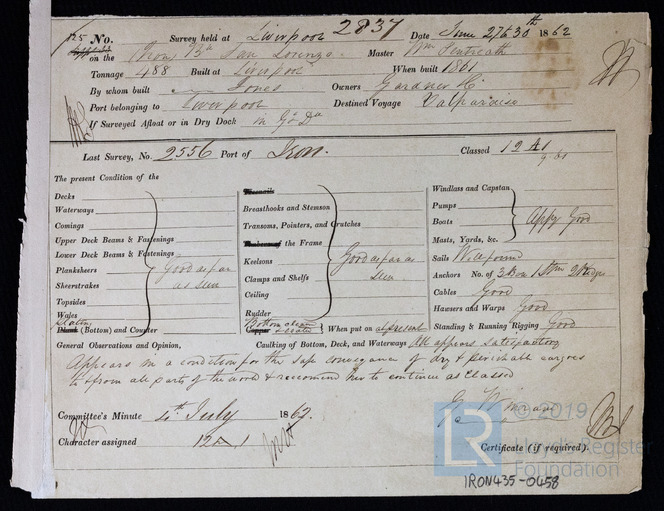 125 No. Survey held at Liverpool 2837 Date June 27 & 30th 1862
on the Iron Bk San Lorenzo Master Wm Pentreath
Tonnage 488 Built at Liverpool When built 1861
By whom built Jones Owners Gardner & Co
Port belonging to Liverpool Destined Voyage Valparaiso
If Surveyed Afloat or in Dry Dock in
Last Survey, No. 2556 Port of Iron. Classed 12 A1
9.61
The present Condition of the
Decks
Waterways
Comings
Upper Deck Beams & Fastenings
Lower Deck Beams & Fastenings
Planksheers
Sheerstrakes
Topsides
Wales
Good as far
as seen
Plating
(Bottom) and Counter
Treenails
Breasthooks and Stemson
Transoms, Pointers, and Crutches
Timbers of the Frame
Keelsons
Clamps and Shelfs
Ceiling
Rudder
Good as far as
seen
Bottom clean
Copper & coated When put on at present
Windlass and Capstan
Pumps
Boats
Masts, Yards, &c.
Appy Good
Sails Well found
Anchors No. of 3 Bow 1 Stm 2 Kedges
Cables Good
Hawsers and Warps Good
Standing & Running Rigging Good
General Observations and Opinion, Caulking of Bottom, Deck, and Waterways All appears satisfactory
Appears in a condition for the safe conveyance of dry & perishable cargoes
to & from all parts of the world & recommend her to continue as Classed
Committee's Minute 4th July 1862.
Character assigned 12 A 1
Certificate (if required).
© 2019
LR
Lloyd's Register
Foundation
IRON435-0458